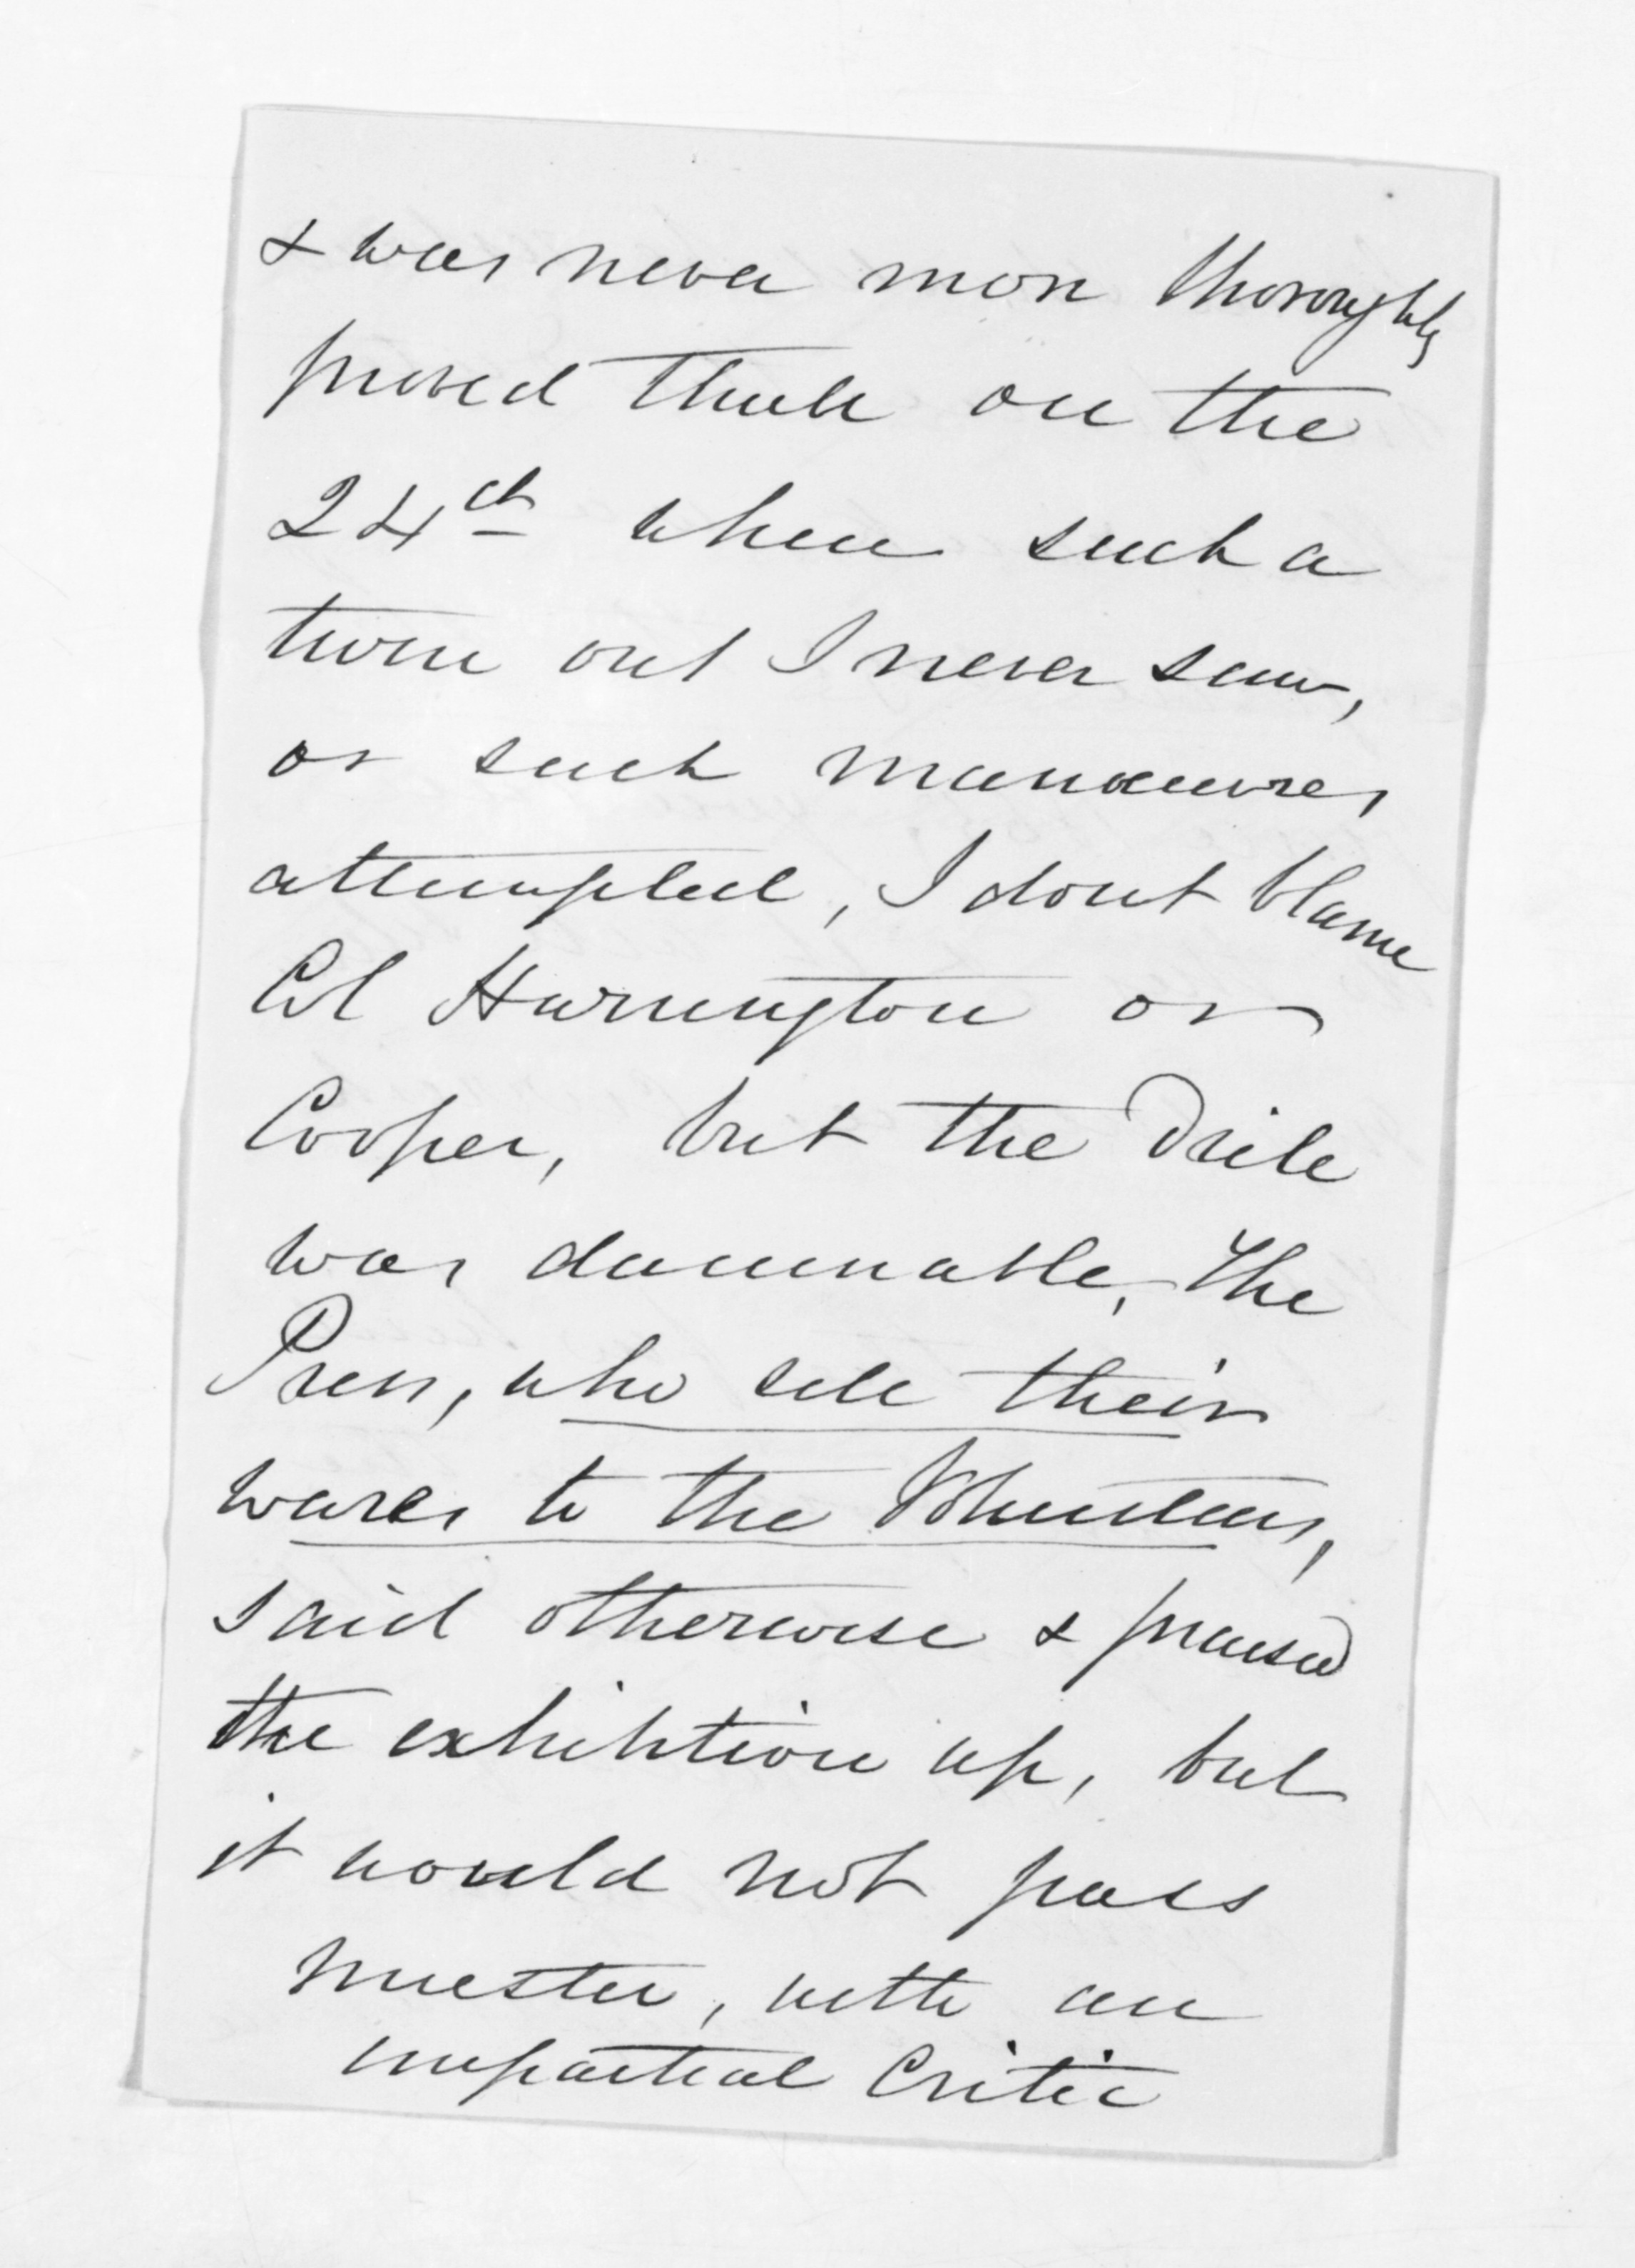 & was never more thoroughly
proved than on the
24th when such a
turn out I never saw,
or such manoeuvres
attempted, I dont blame
Col Harrington or
Cooper, but the Drill
was damnable, The
Press, who sell their
wares to the Volunteers,
said otherwise & praised
the exhibition up, but
it would not pass
muster, with an
impartial Critic